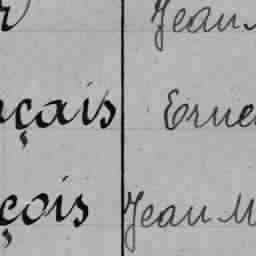 Jean
çais Erne
çois Jean M